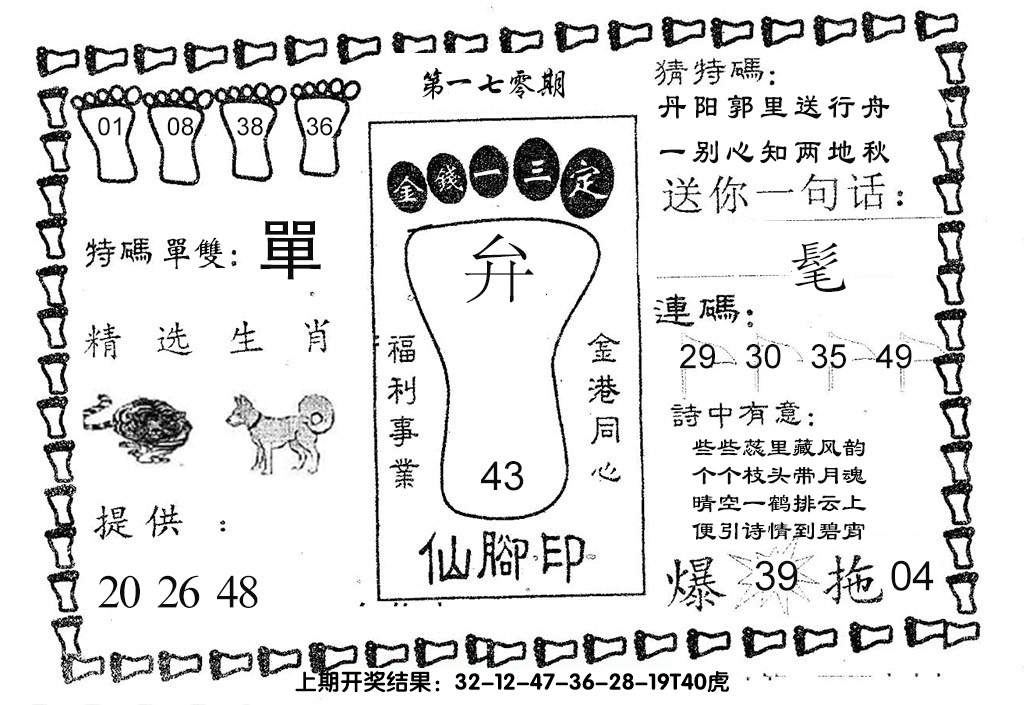 第一七零期
01 08 38 36
特碼單雙：單
精选生肖
提供：
20 26 48
金錢一三定
弁
43
福利事業
金港同心
仙腳印
猜特碼：
丹阳郭里送行舟
一别心知两地秋
送你一句话：
髦
連碼：
29 30 35 49
詩中有意：
些些蕊里藏风韵
个个枝头带月魂
晴空一鹤排云上
便引诗情到碧宵
爆 39 拖 04
上期开奖结果：32-12-47-36-28-19T40虎